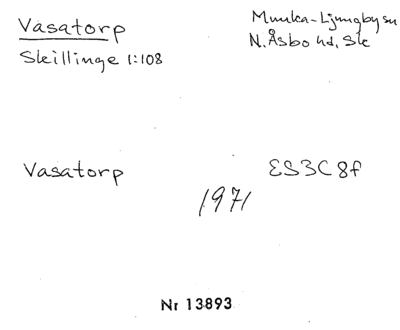 Vasatorp
Skillinge 1:108
Munka-Ljungby sn
N. Åsbo hd, Sk
Vasatorp
ES3C 8f
1971
Nr 13893